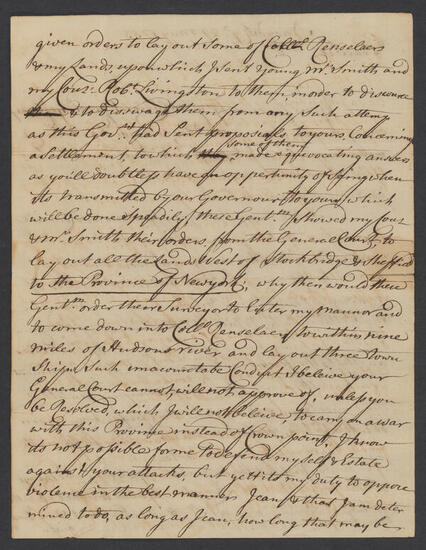 given orders to lay out some of Collo. Renselaers
& my Lands, upon which I sent Young Mr. Smith and
my Cous: Robt. Livingston to them, in order to discource
& to disswage them from any such attemp
as this Govt. had sent proposials to yours, Concerning
a Settlement, to which some of them made equevocating answers
as you'll doubtless have an oppertunity of seeing when
its transmitted by your Governour to yours, which
will be done speadily, these Gentn. showed my Cous
& Mr. Smith their orders, from the General Court, to
lay out all the Lands West of Stockbridge & Sheffield
to the Province of New york, why then would these
Gentn. order their Surveyor to Enter my mannor and
to come down into Collo. Renselaers to within nine
miles of Hudsons river and lay out three Town
Ships, Such unacountable Conduct I beleive your
General Court cannot, will not approve of, unless you
be Resolved, which I will not beleive to carry on a war
with this Province instead of Crown point, I know
its not possible for me to defend my self & Estate
against your attacks, but yet its my duty to oppose
violence in the best manner I can & that I am deter
mined to do, as long as I can, how long that may be